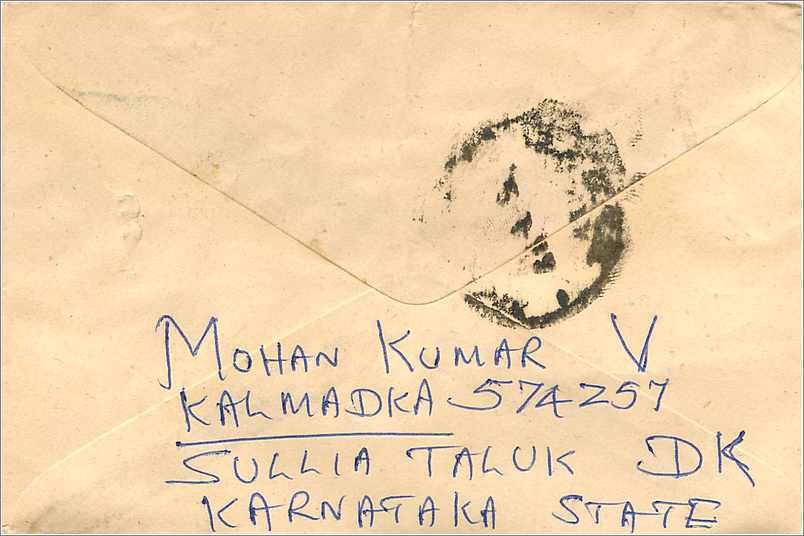 MOHAN KUMAR V
KALMADKA 574257
SULLIA TALUK DK
KARNATAKA STATE